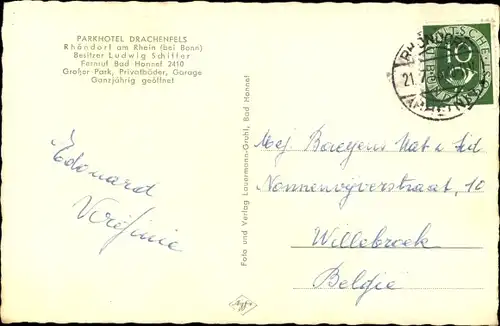 PARKHOTEL DRACHENFELS
Rhöndorf am Rhein (bei Bonn)
Besitzer Ludwig Schiffer
Fernruf Bad Honnef 2410
Großer Park, Privatbäder, Garage
Ganzjährig geöffnet
Edouard
Virginie
Foto und Verlag Lauermann-Gruhl, Bad Honnef
Agfa
DEUTSCHE POST
10
21.
Nat &
Nonnenvijverstraat, 10
Willebroek
Belgie